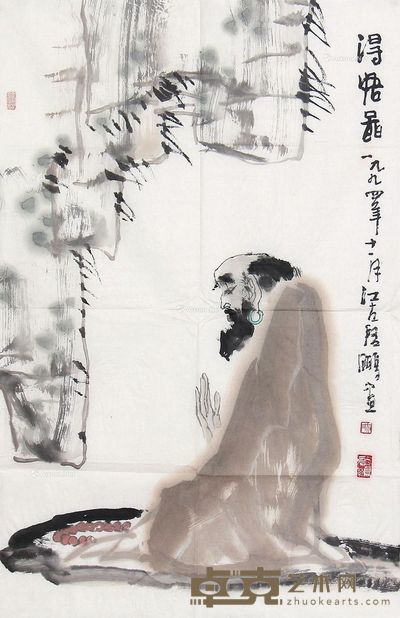 得悟啚
一九九四年十一月江左鵬畫
卓克艺术网
zhuokearts.com